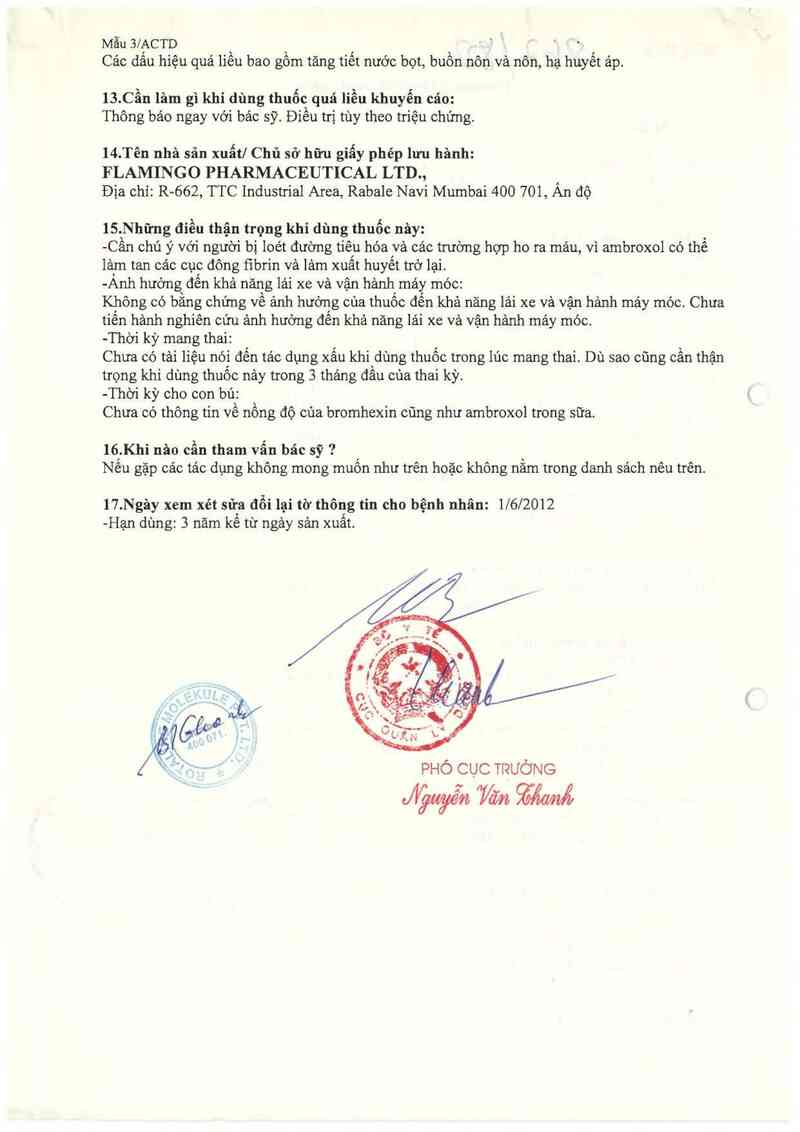 Mẫu 3/ACTD
Các dấu hiệu quá liều bao gồm tăng tiết nước bọt, buồn nôn và nôn, hạ huyết áp.
13.Cần làm gì khi dùng thuốc quá liều khuyến cáo:
Thông báo ngay với bác sỹ. Điều trị tùy theo triệu chứng.
14.Tên nhà sản xuất/ Chủ sở hữu giấy phép lưu hành:
FLAMINGO PHARMACEUTICAL LTD.,
Địa chỉ: R-662, TTC Industrial Area, Rabale Navi Mumbai 400 701, Ấn độ
15.Những điều thận trọng khi dùng thuốc này:
-Cần chú ý với người bị loét đường tiêu hóa và các trường hợp ho ra máu, vì ambroxol có thể
làm tan các cục đông fibrin và làm xuất huyết trở lại.
-Ảnh hưởng đến khả năng lái xe và vận hành máy móc:
Không có bằng chứng về ảnh hưởng của thuốc đến khả năng lái xe và vận hành máy móc. Chưa
tiến hành nghiên cứu ảnh hưởng đến khả năng lái xe và vận hành máy móc.
-Thời kỳ mang thai:
Chưa có tài liệu nói đến tác dụng xấu khi dùng thuốc trong lúc mang thai. Dù sao cũng cần thận
trọng khi dùng thuốc này trong 3 tháng đầu của thai kỳ.
-Thời kỳ cho con bú:
Chưa có thông tin về nồng độ của bromhexin cũng như ambroxol trong sữa.
16.Khi nào cần tham vấn bác sỹ ?
Nếu gặp các tác dụng không mong muốn như trên hoặc không nằm trong danh sách nêu trên.
17.Ngày xem xét sửa đổi lại tờ thông tin cho bệnh nhân: 1/6/2012
-Hạn dùng: 3 năm kể từ ngày sản xuất.
BỘ Y TẾ
CỤC QUẢN LÝ
MOLEKULE PVT. LTD.
400 071.
PHÓ CỤC TRƯỞNG
Nguyễn Văn Thanh